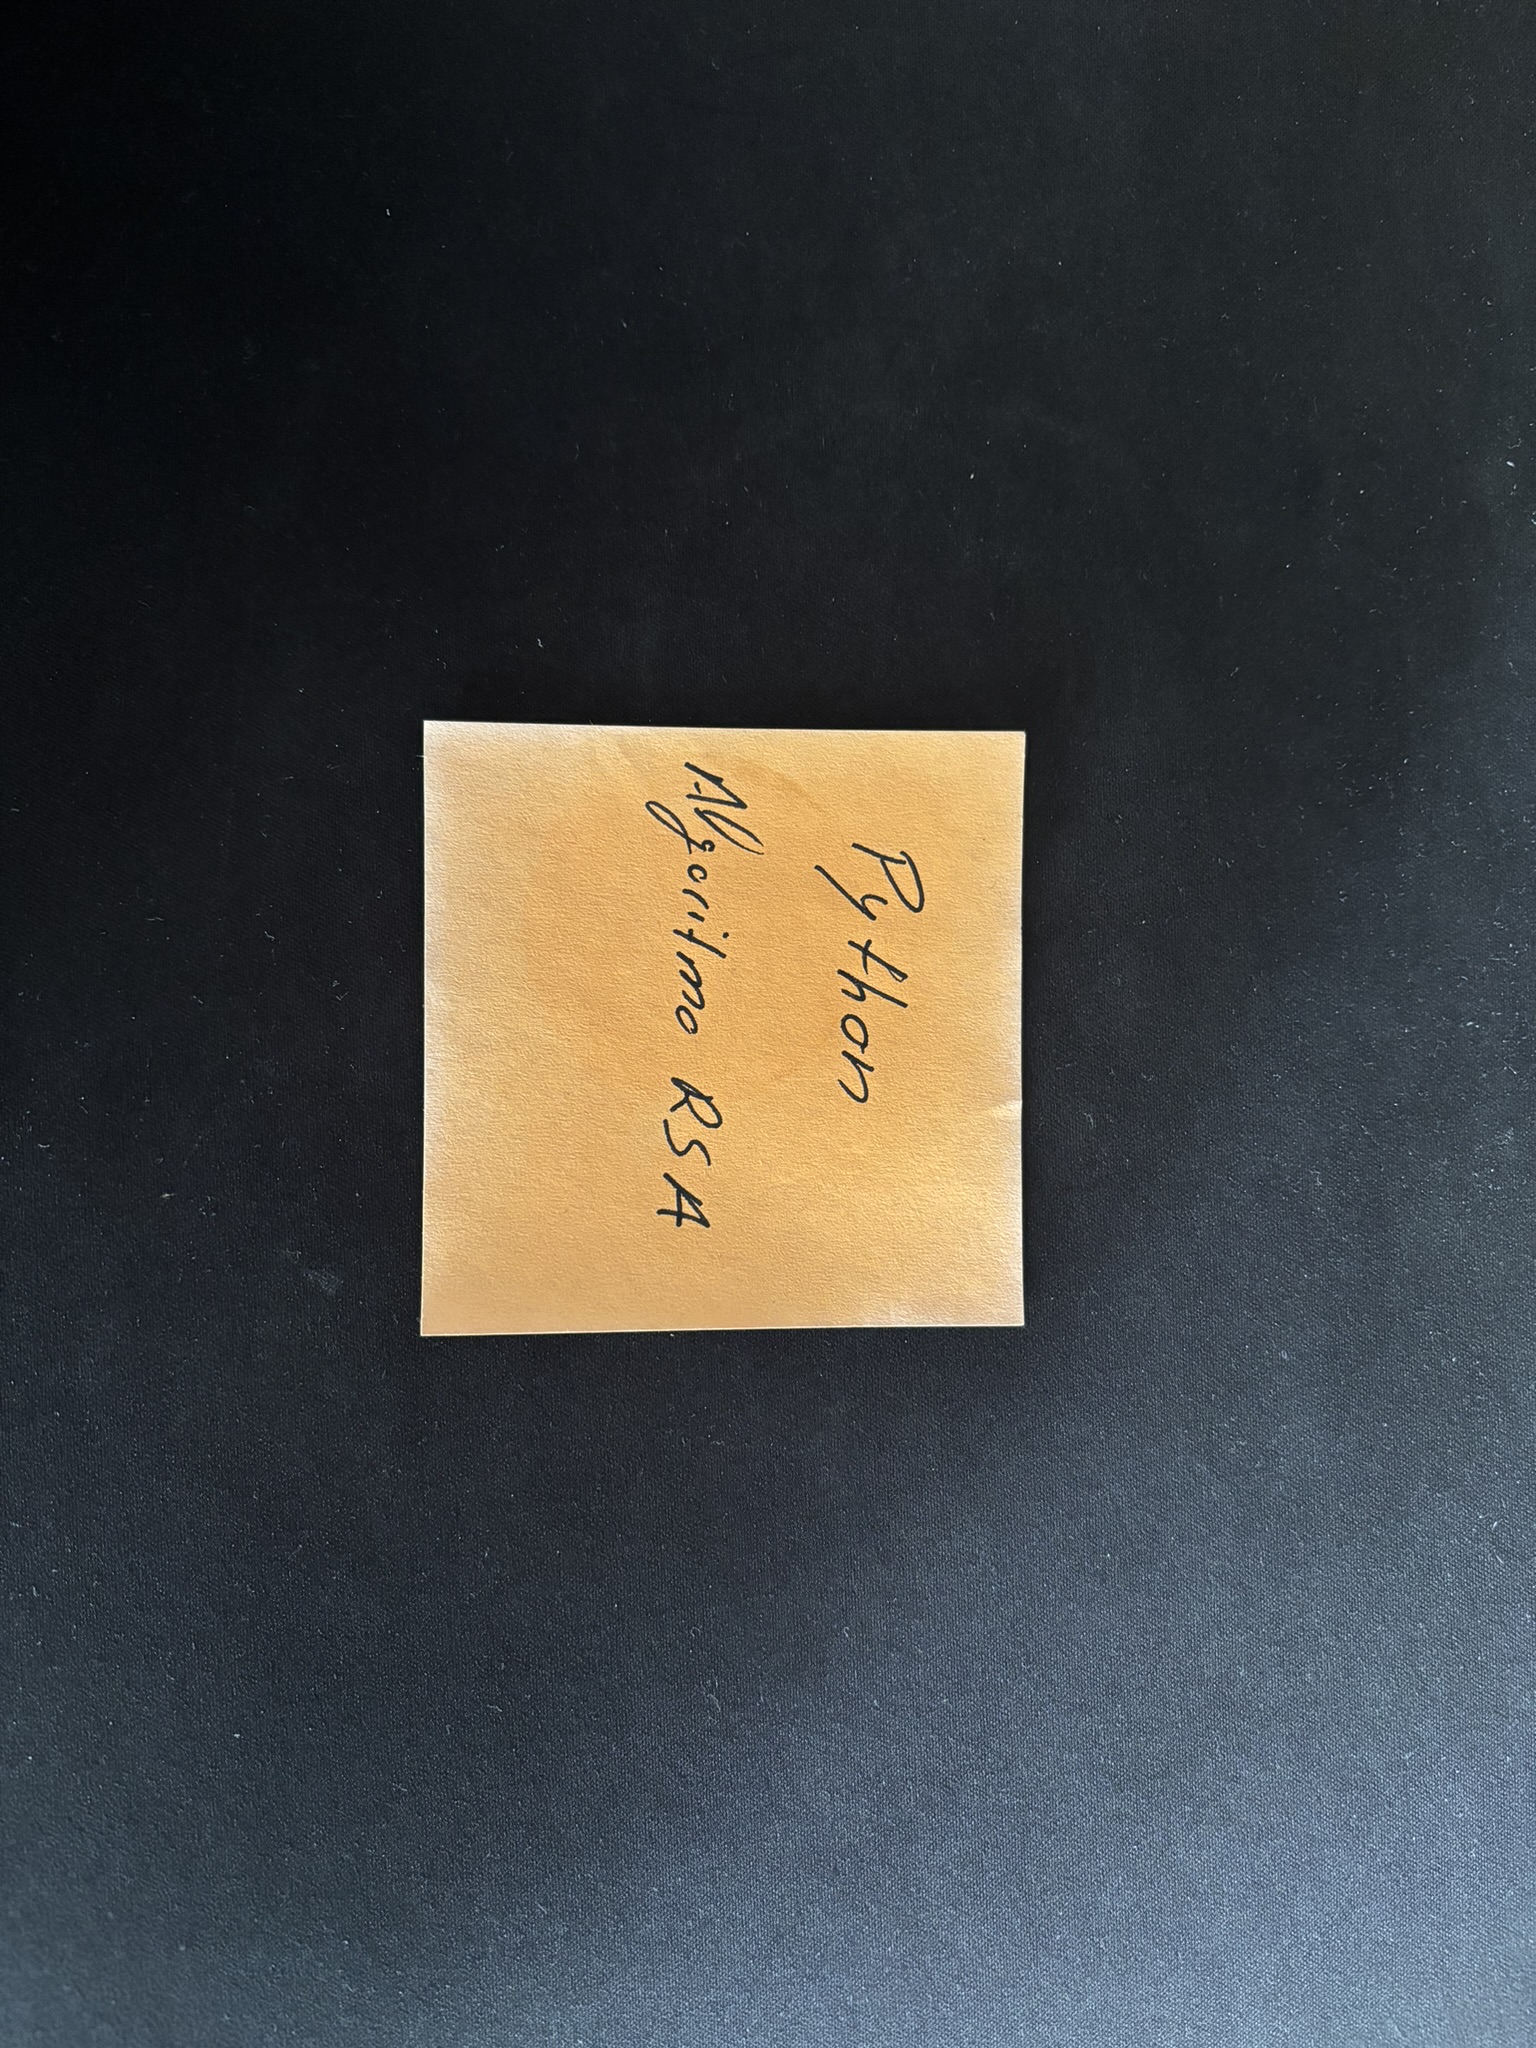 Python
Algoritmo RSA